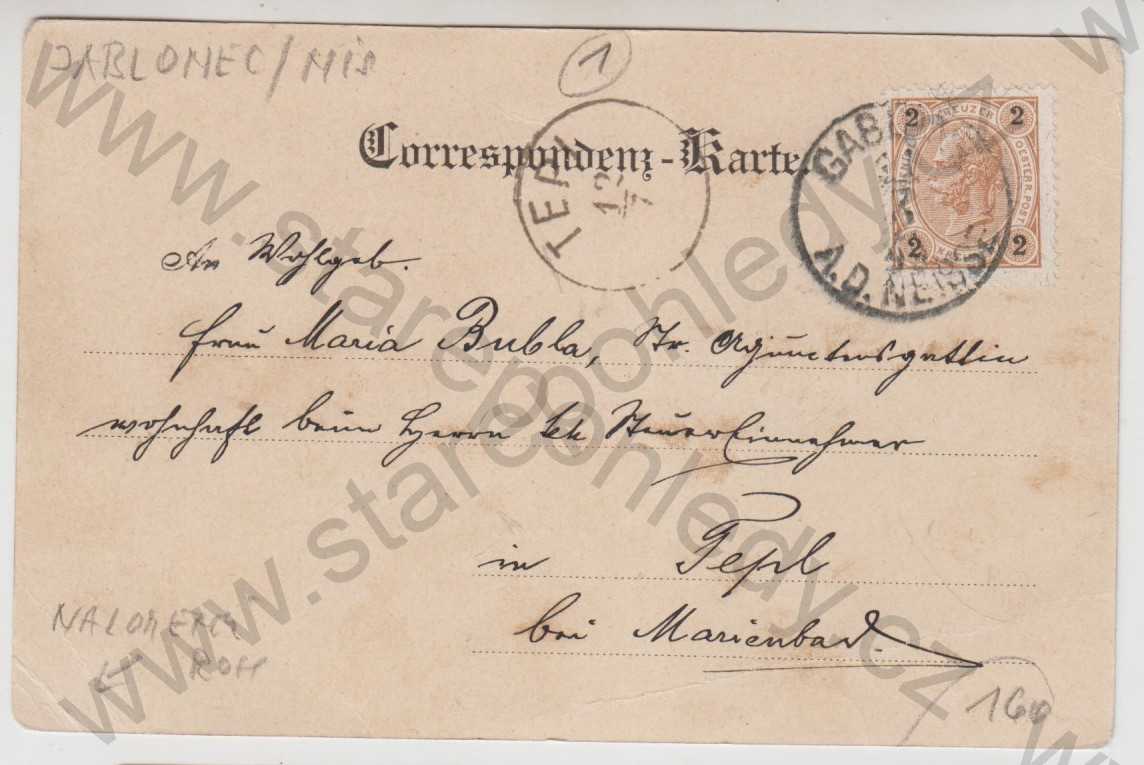 JABLONEC/NIS
1
Correspondenz-Karte.
TEPL
12/7
GABLONZ
A.D. NEISSE
2 KREUZER 2
OESTERR. POST.
2 2
An Wohlgeb.
Frau Maria Bubla, Str. Adjunctensgattin
wohnhaft beim Herrn kk Steuer Einnehmer
in Tepl
bei Marienbad.
160
www.starepohledy.cz
www.starepohledy.cz